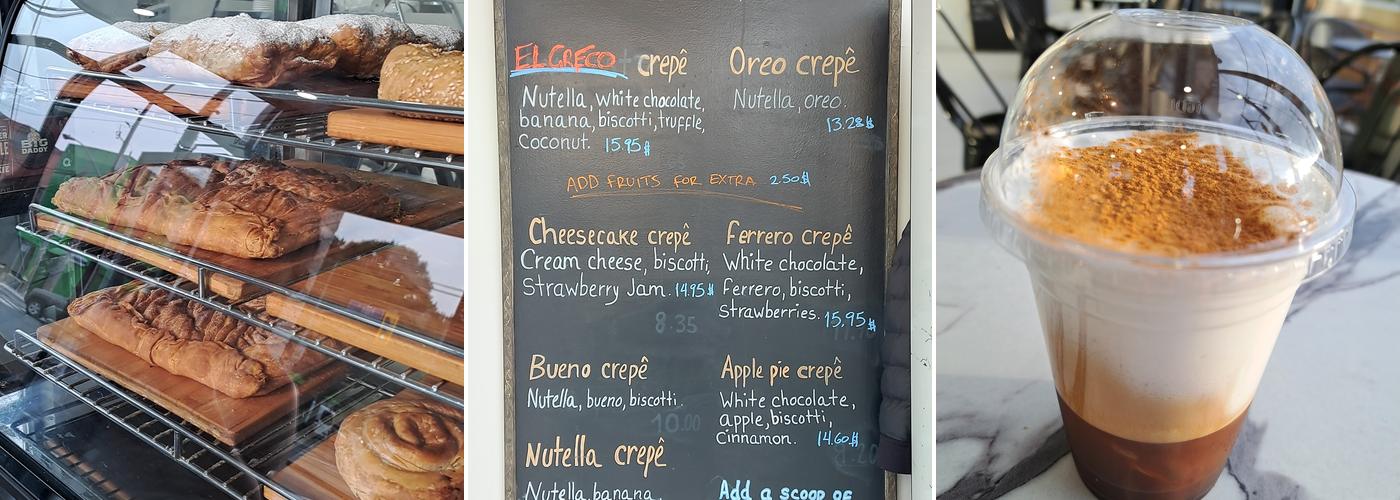 BIG
DADDY
EL GRECO crepê
Nutella, white chocolate,
banana, biscotti, truffle,
Coconut. 15.95$
Oreo crepê
Nutella, oreo.
13.28$
ADD FRUITS FOR EXTRA 2.50$
Cheesecake crepê
Cream cheese, biscotti,
Strawberry Jam. 14.95$
8.35
Ferrero crepê
White chocolate,
Ferrero, biscotti,
Strawberries. 15.95$
Bueno crepê
Nutella, bueno, biscotti.
10.00
Apple pie crepê
White chocolate,
apple, biscotti,
Cinnamon. 14.60$
Nutella crepê
Nutella, banana,
Add a scoop of